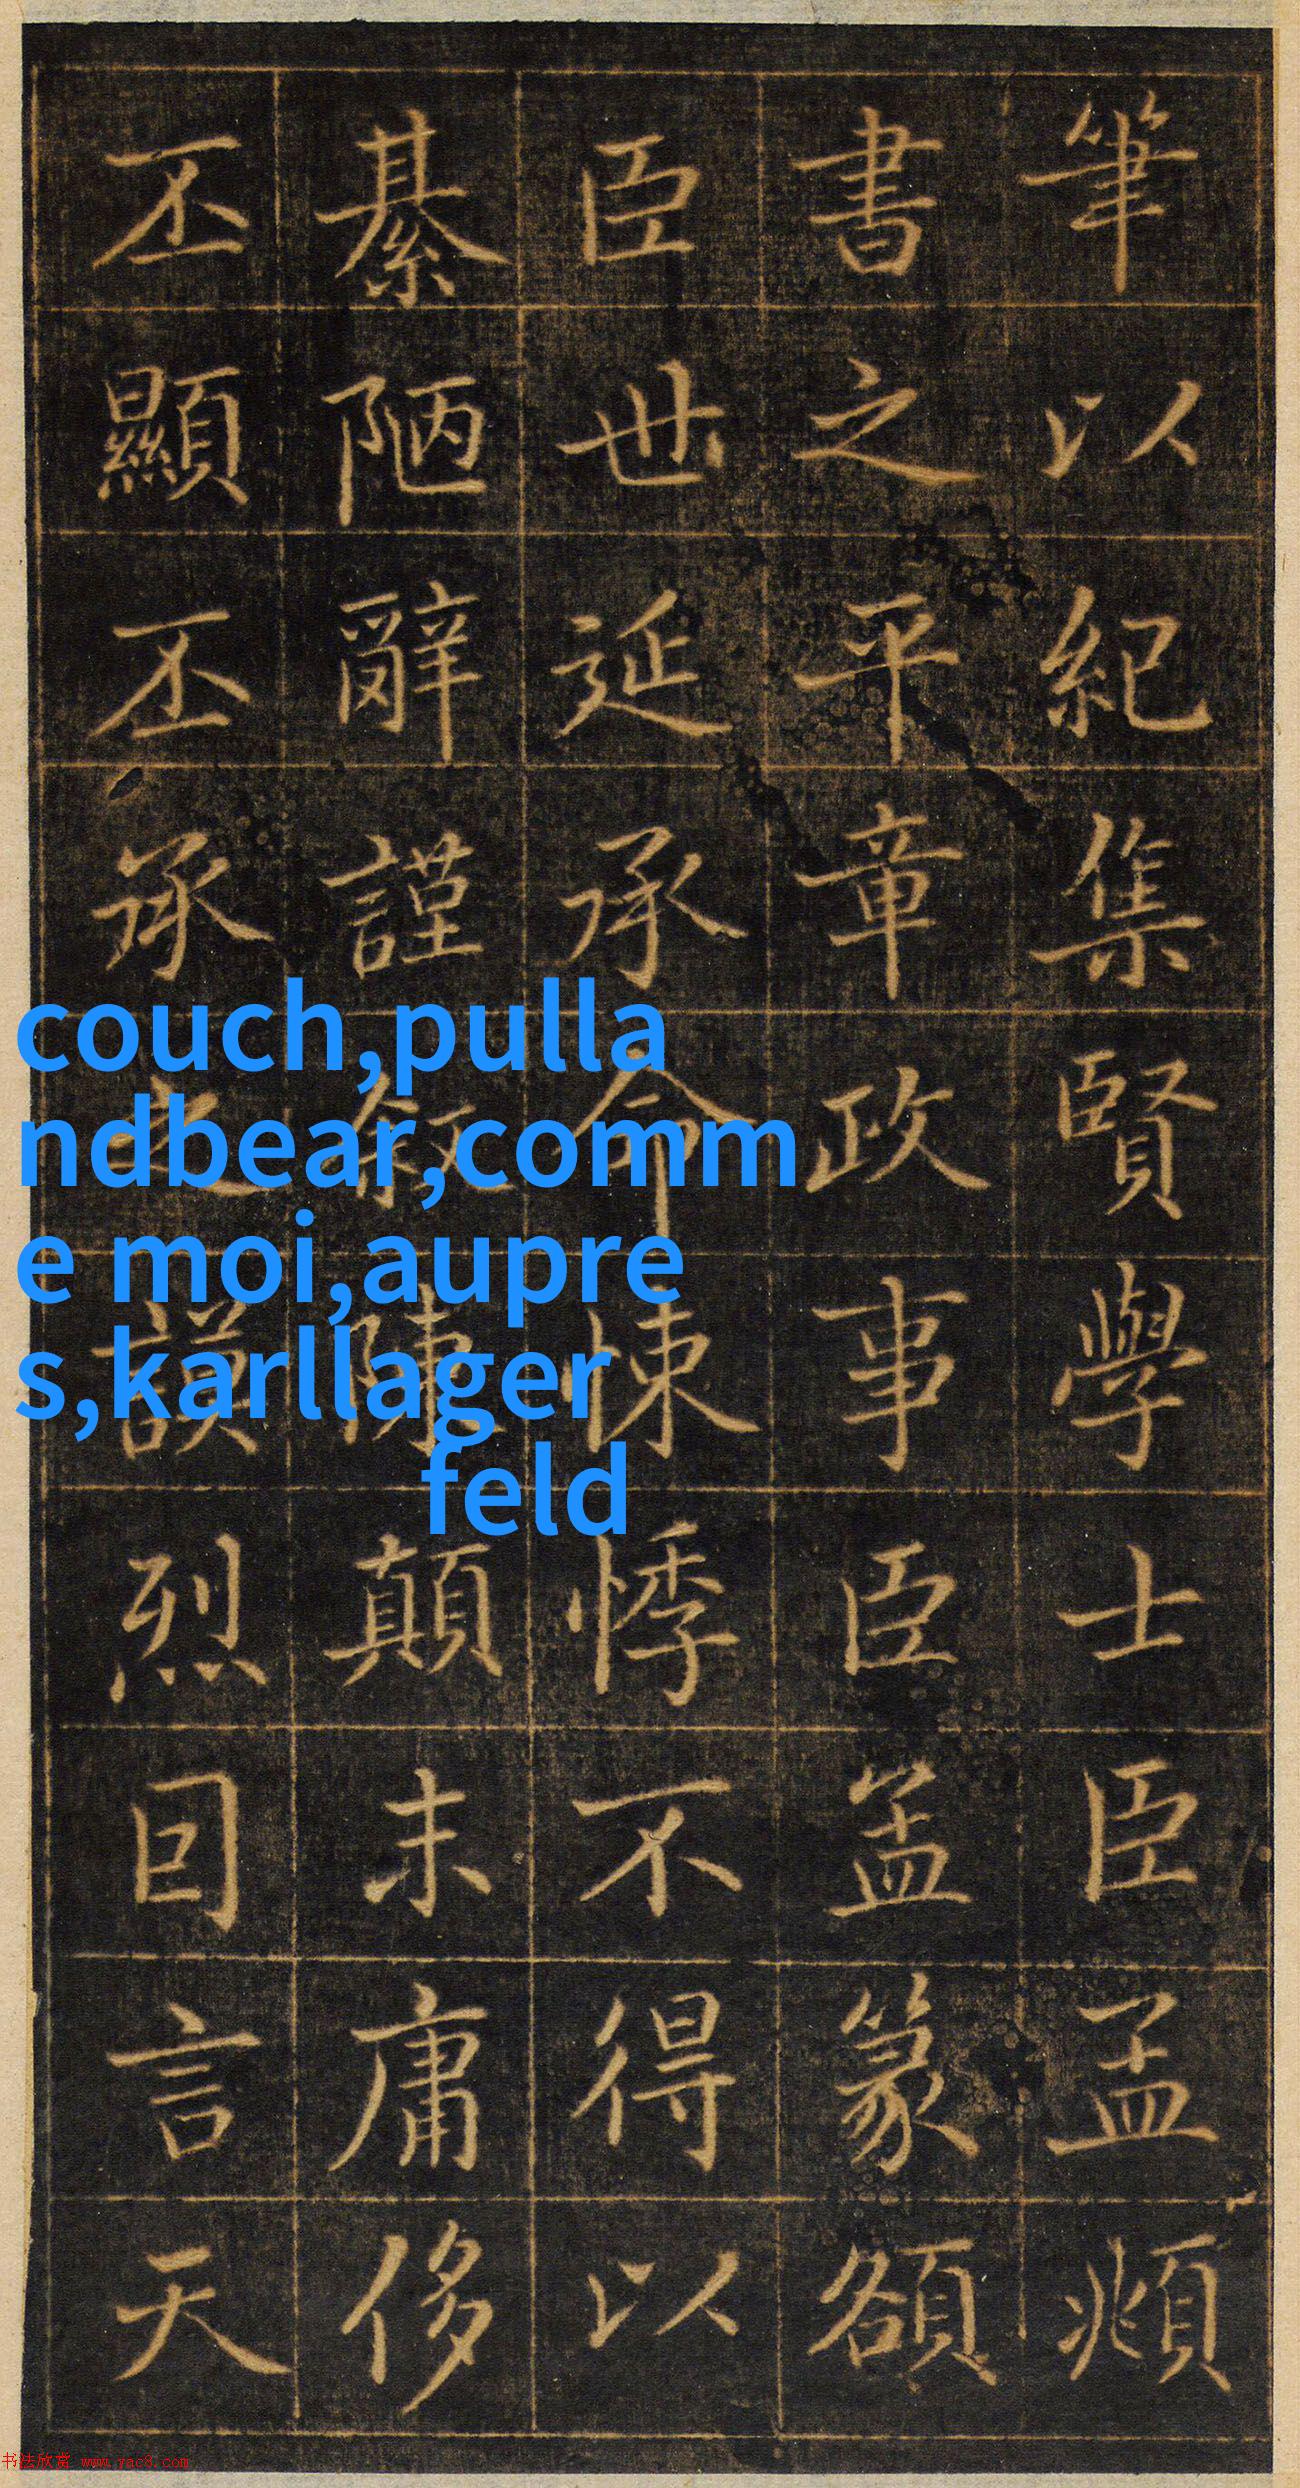 筆以紀集賢學士臣孟頫
書之平章政事臣篆額
臣世延承命悚悸不得以
綦陋辭謹敘陳顛末庸侈
丕顯丕承之謨烈囙言天
couch,pulla
ndbear,comm
e moi,aupre
s,karllager
feld
书法欣赏 www.yac8.com